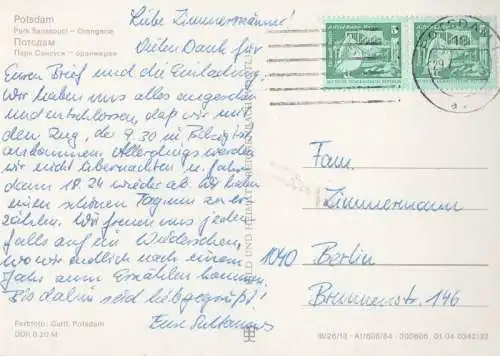 Potsdam
Park Sanssouci — Orangerie
Потсдам
Парк Сансуси — оранжерея
Liebe Zimmermänner!
Vielen Dank für
Euren Brief und die Einladung.
Wir haben uns alles angesehen
und entschlossen, daß wir mit
dem Zug, der 9.30 in
ankommen. Allerdings werden
wir nicht übernachten u. fahren
dann 18.24 wieder ab. Wir haben
einen schönen Tag um zu er-
zählen. Wir freuen uns jeden-
falls auf ein Wiedersehen,
wo wir endlich nach einem
Jahr zum Erzählen kommen.
Bis dahin seid lieb gegrüßt!
Eure
Fam.
Zimmermann
1040 Berlin
Brunnenstr. 146
Farbfoto: Gurtl, Potsdam
DDR 0,20 M
III/26/13 · A1/606/84 · 300606 01 04 0342/33